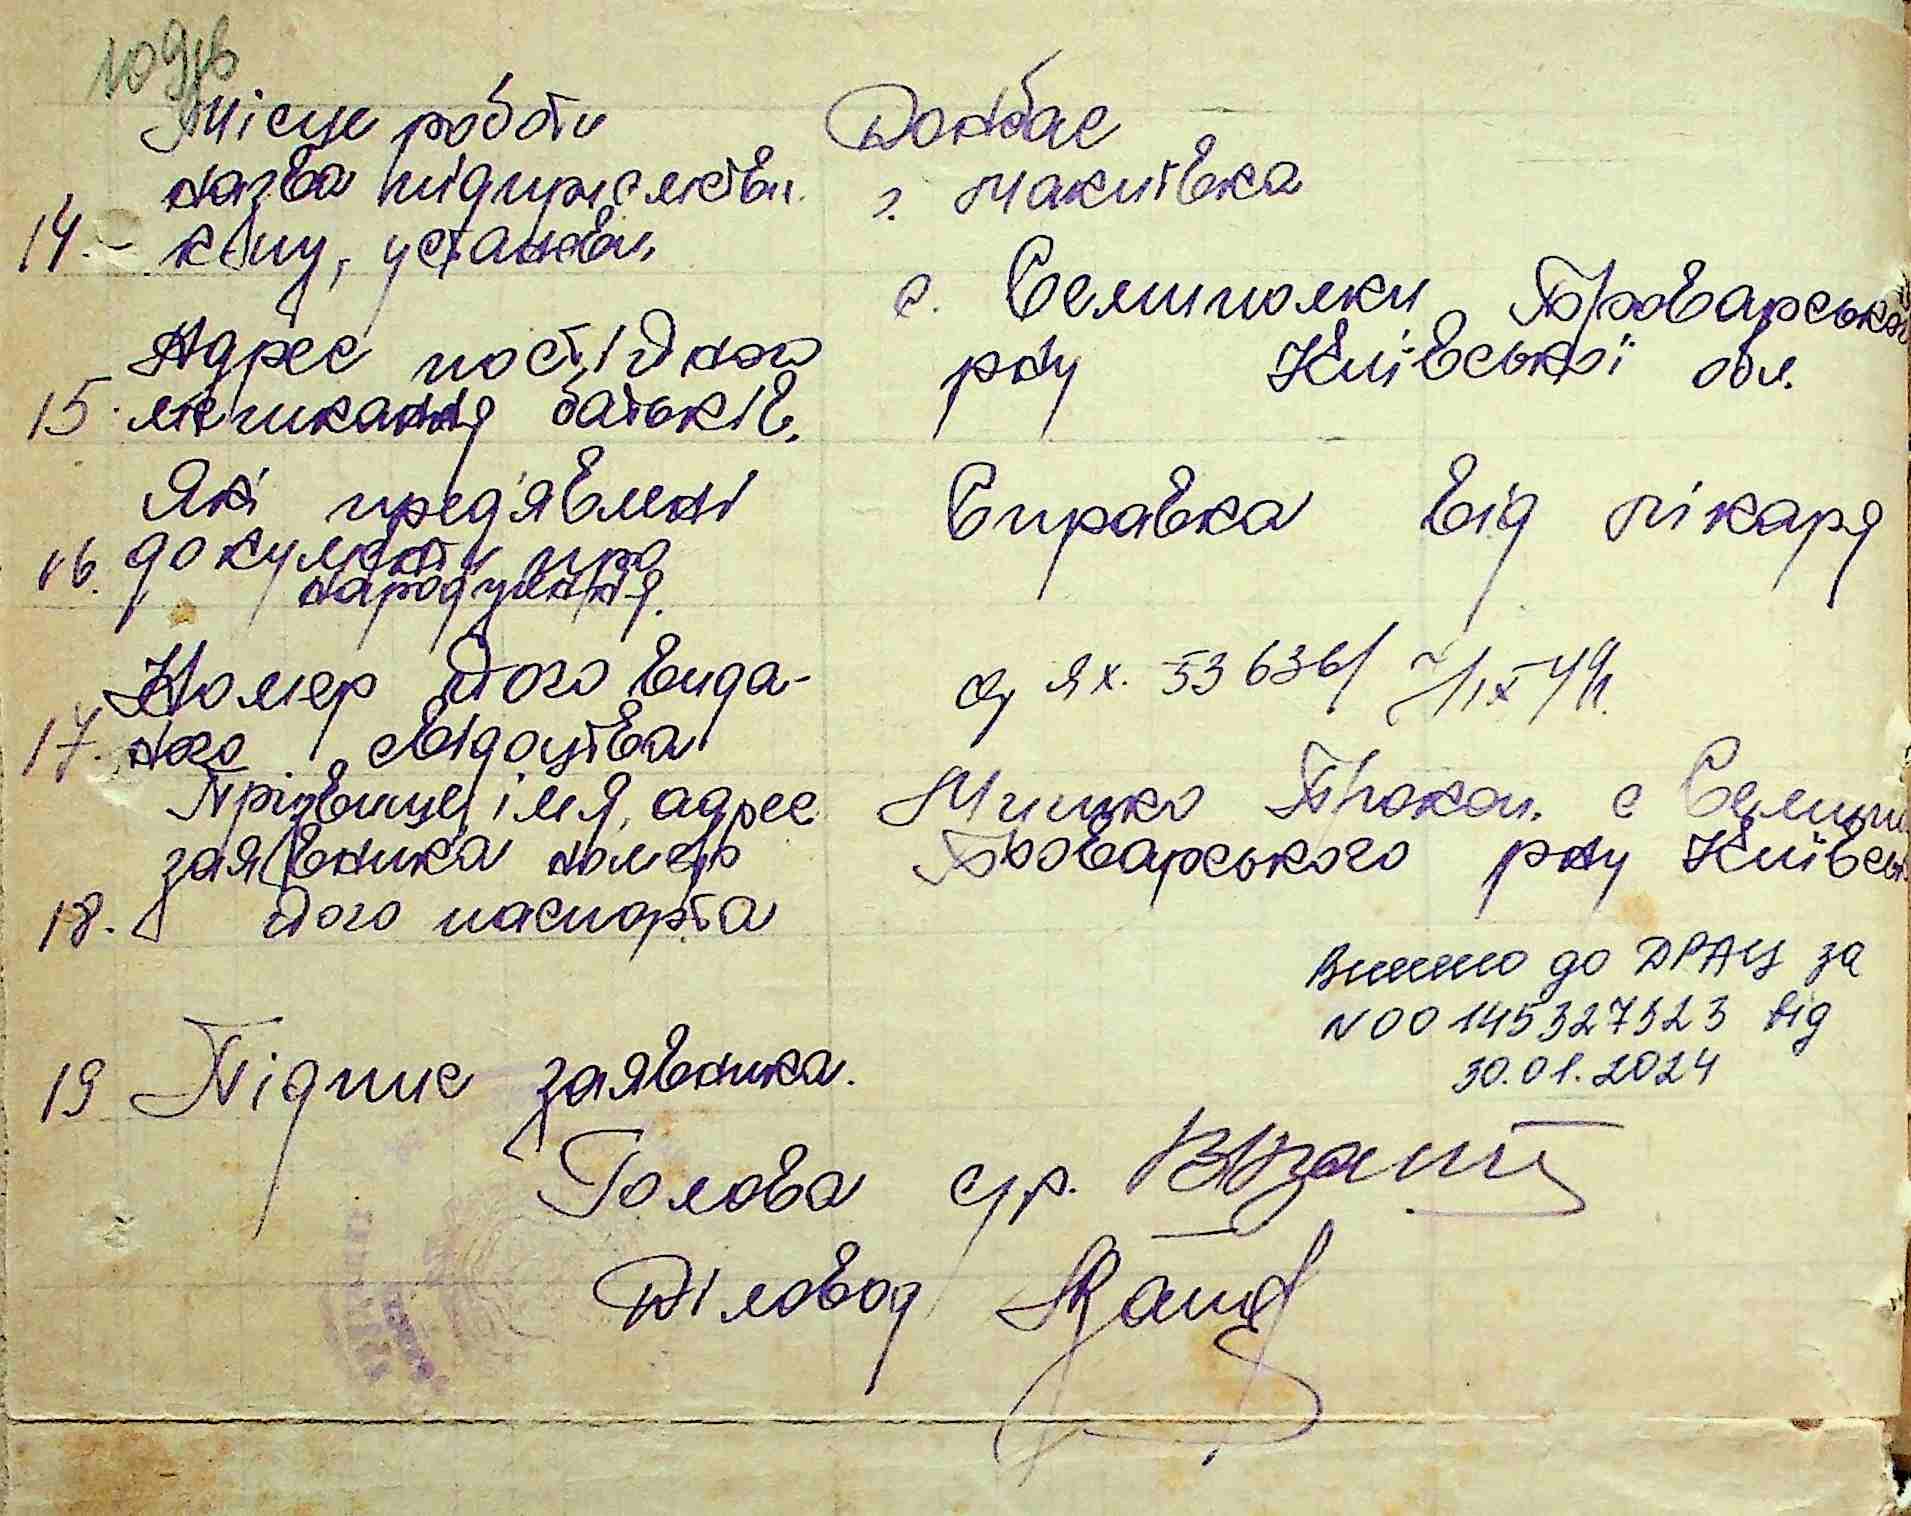 109зв
Місце роботи Донбас
назва підприємства. г. Макиївка
14. – к-пу, установи,
с. Семиполки Броварського
Адрес постійного р-ну Київської обл.
15. мешкання батьків.
Які пред'явлені Справка від лікаря
16. документи про
народження.
Номер його вида- ЯХ. 53636/ 7/IX-44
17. ного свідоцтва
Прізвище, ім'я, адрес Мишко Прокоп. с Семип
заявника номер Броварського р-ну Київсь
18. його паспорта
Внесено до ДРАЦ за
N 00145327523 від
30.01.2024
19 Підпис заявника.
Голова с/р.
Діловод